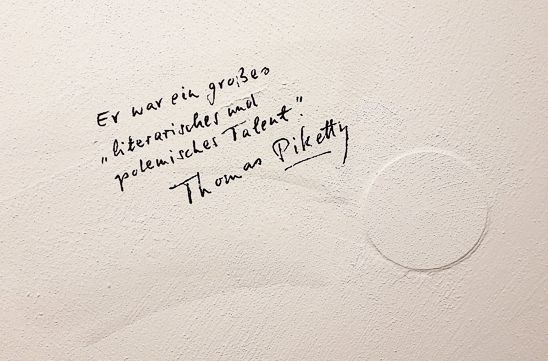 Er war ein großes
"literarisches und
polemisches Talent".
Thomas Piketty